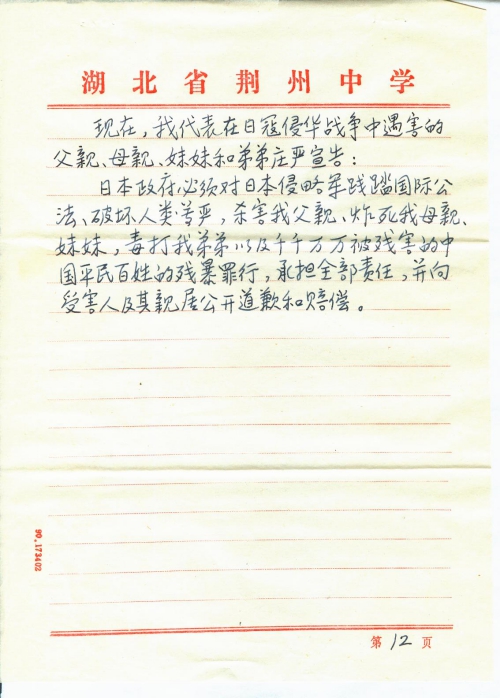 湖北省荆州中学
现在，我代表在日寇侵华战争中遇害的
父親、母親、妹妹和弟弟庄严宣告：
日本政府必须对日本侵略军践踏国际公
法、破坏人类尊严，杀害我父親、炸死我母親、
妹妹，毒打我弟弟以及千千万万被残害的中
国平民百姓的残暴罪行，承担全部责任，并向
受害人及其親居公开道歉和赔偿。
90.173402
第 12 页